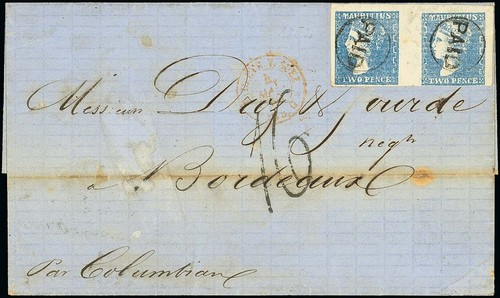 MAURITIUS MAURITIUS
PAID PAID
TWO PENCE TWO PENCE
Messieurs Droz & Gourde
negts
à Bordeaux
Par Columbian